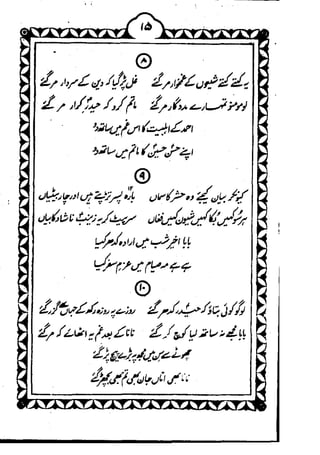 ۱۵
۸
یہ کہتے کہتے شیعوں کے غمخوار مر گئے غل پڑ گیا کہ دین کے سردار مر گئے
لو مومنو تمہارے مددگار مر گئے ماتم کرو کہ حیدر کرار مر گئے
احمد کے اہلبیت کا اس غم میں ساتھ دو
اپنے حسن حسین کا ماتم میں ساتھ دو
۹
کیونکر بیاں کیجئے وہ حشر کا سماں بارہ پسر تڑپتے ہیں اور چار بیٹیاں
ہر سو کہیں بکا کہیں شیون کہیں فغاں سر پیٹ کر یہ زینب ناشاد کا بیاں
بابا اخیر شب میں ارادہ کدھر کیا
ہے ہے مہ صیام میں عزم سفر کیا
۱۰
لوگو کوئی بتاؤ کہ حیدر کدھر گئے روزے پہ روزہ رکھ کے جہاں سے گزر گئے
بابا مجھے نہ ساتھ لیا کوچ کر گئے نانا کے بعد غم یہ اٹھائے کہ مر گئے
چھوٹے سے سن میں مجھ پہ بڑے پیچ پڑ گئے
نانا بھی اماں جان بھی تم بھی بچھڑ گئے